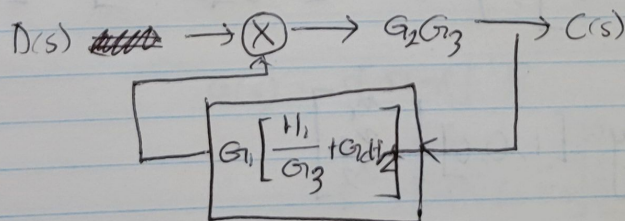 D(s) → ⊗ → G₂G₃ → C(s)
G₁[H₁/G₃ + G₂H₂]